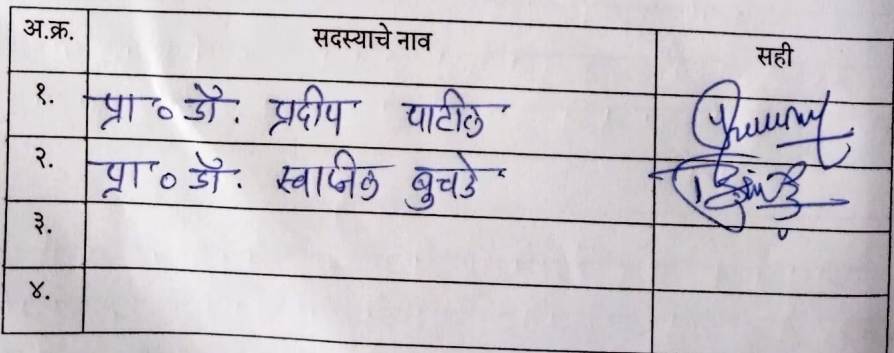 अ.क्र. सदस्याचे नाव सही
१. प्रा० डॉ. प्रदीप पाटील
२. प्रा० डॉ. स्वप्नील बुचडे
३.
४.